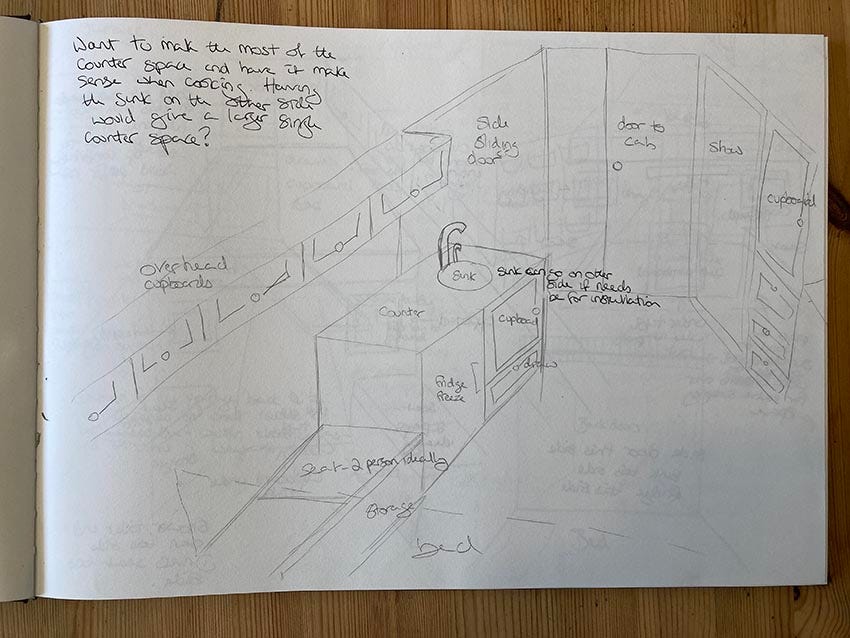 Want to make the most of the
counter space and have it make
sense when cooking. Having
the sink on the other side
would give a larger single
counter space?
Side
sliding
door
door to
cab
show
cupboard
overhead
cupboards
Sink
Sink can go on other
side if needs
be for installation
Counter
cupboard
draw
Fridge
freeze
Seat - 2 person ideally
Storage
bed